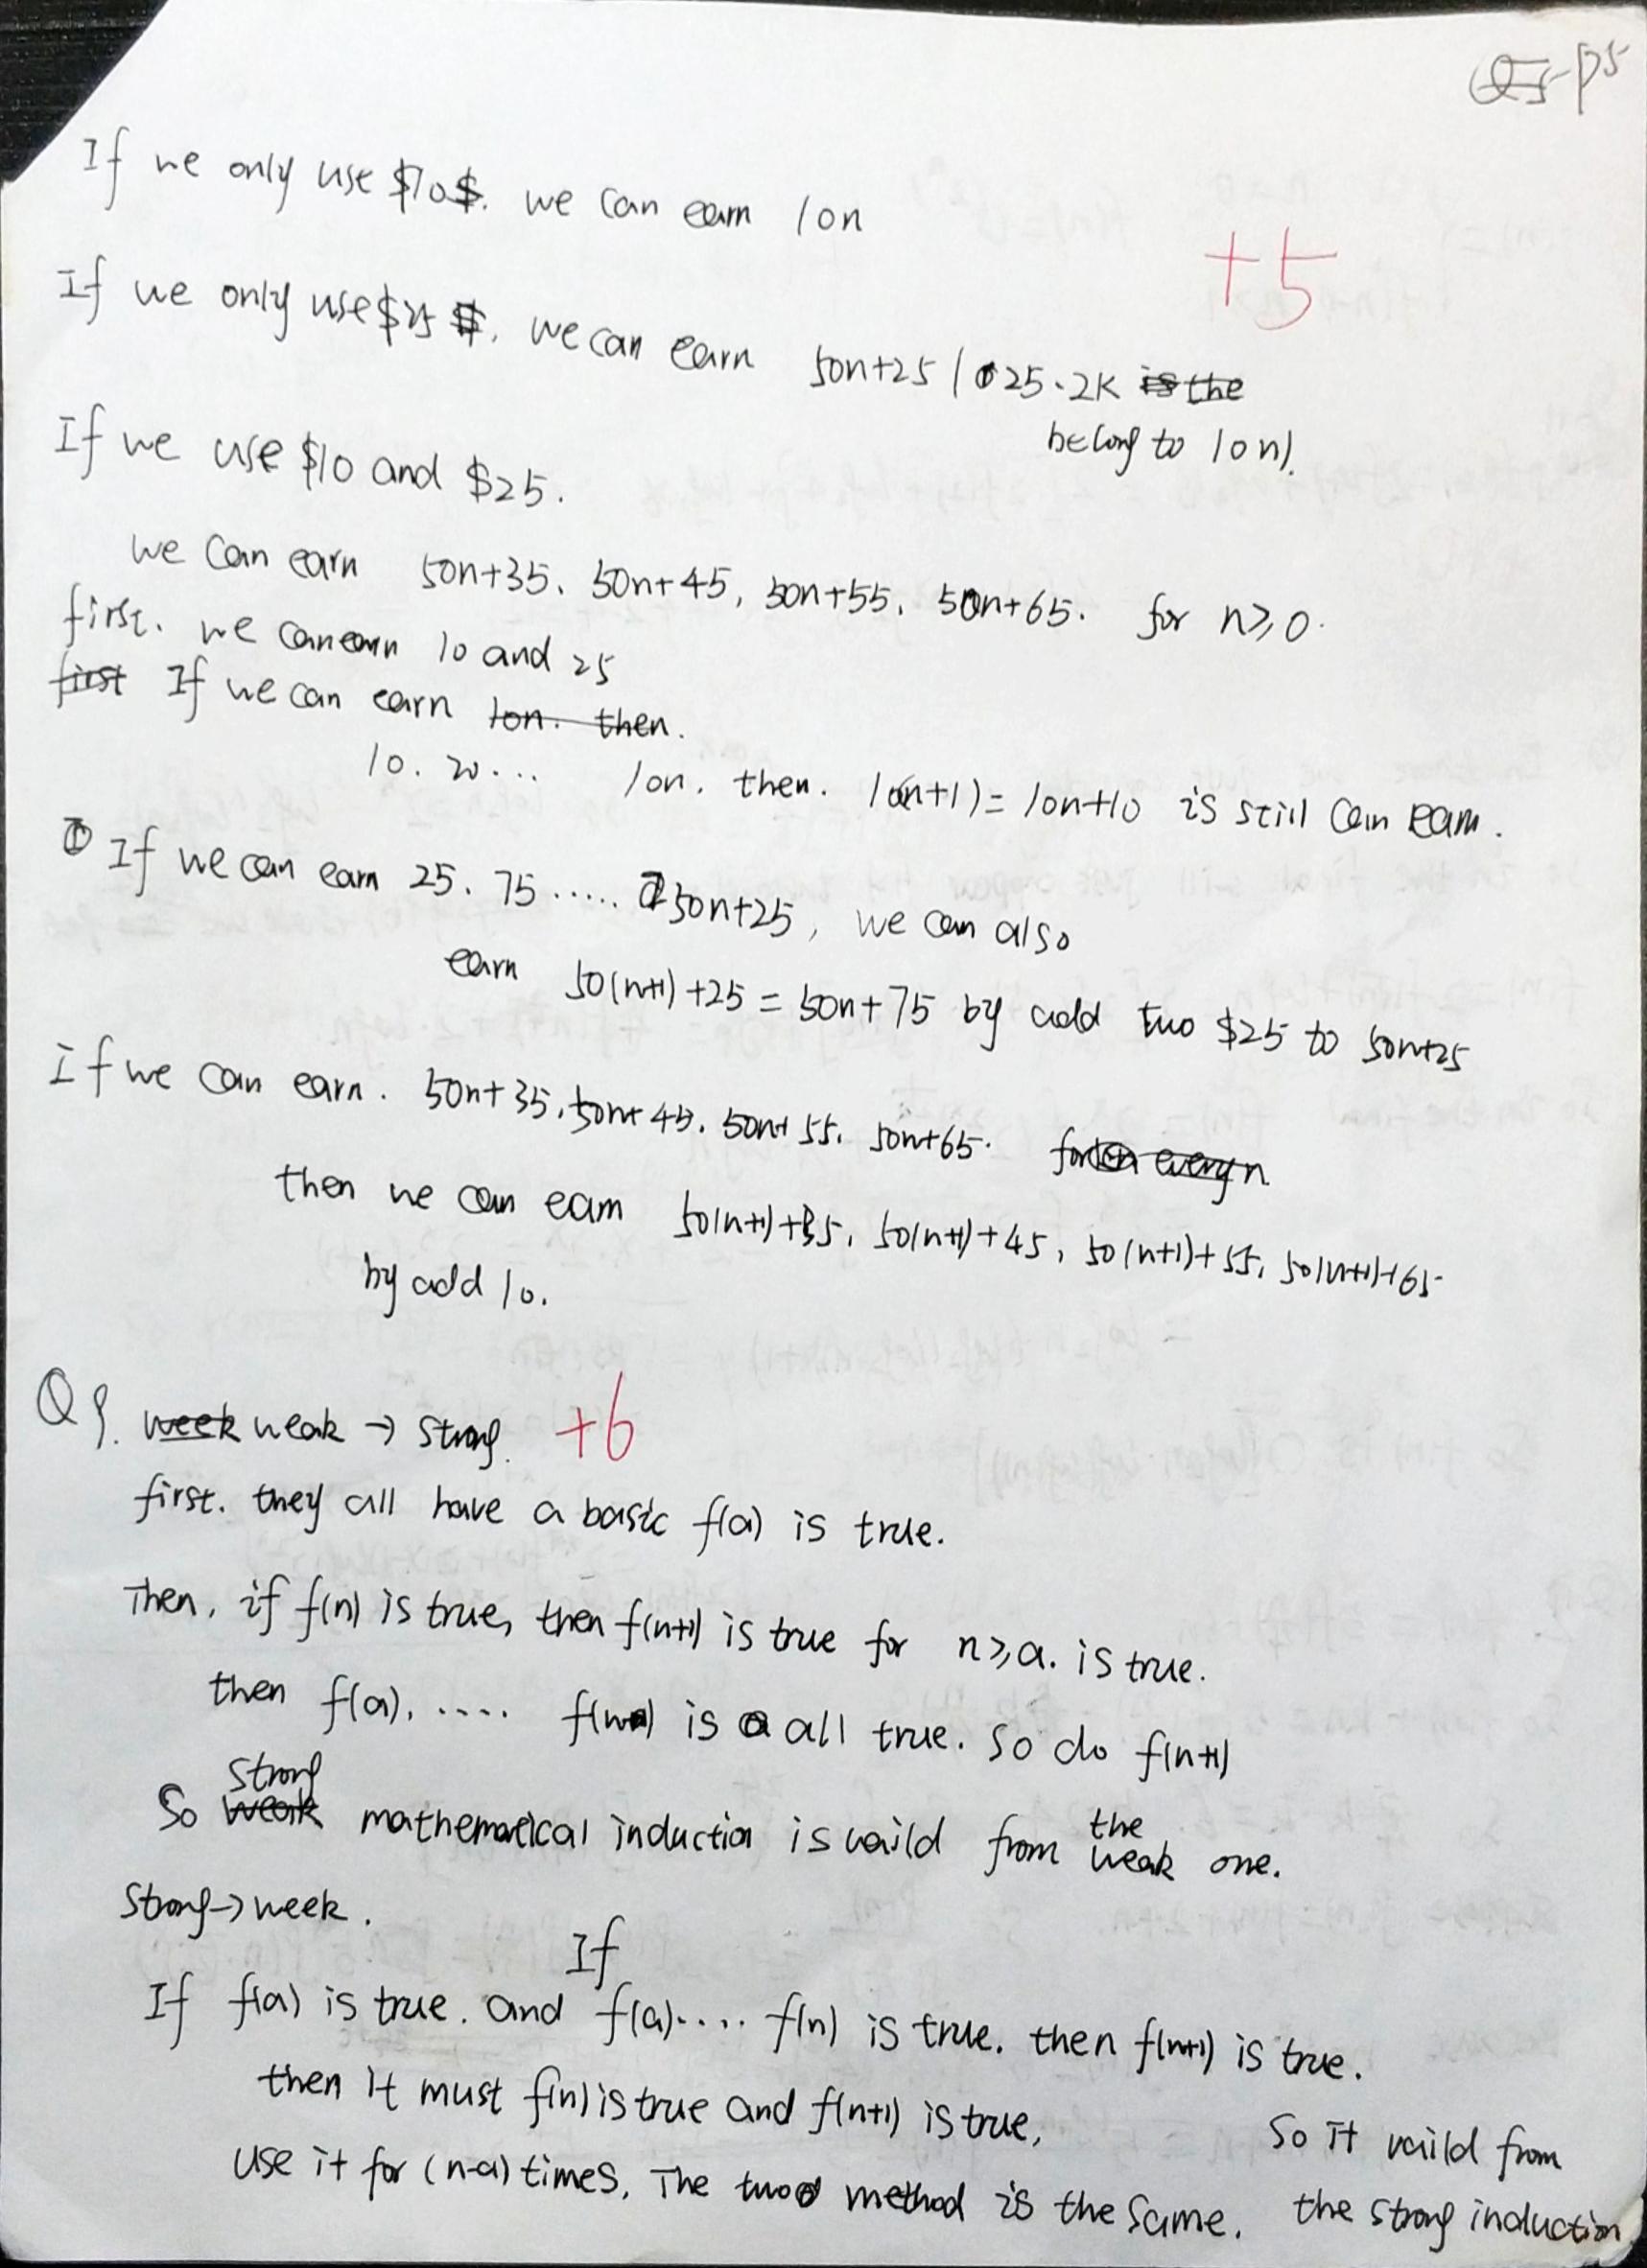 Q5-P5
If we only use $10$. we can earn 10n
+5
If we only use $25 $. we can earn 50n+25 ( 25·2K is the
belong to 10n).
If we use $10 and $25.
we can earn 50n+35. 50n+45, 50n+55. 50n+65. for n≥0.
first. we can earn 10 and 25
first If we can earn 10n. then.
10. 20... 10n. then. 10(n+1)=10n+10 is still can earn.
① If we can earn 25. 75..... 50n+25, we can also
earn 50(n+1)+25 = 50n+75 by add two $25 to 50n+25
If we can earn. 50n+35. 50n+45. 50n+55. 50n+65. for every n.
then we can earn 50(n+1)+35, 50(n+1)+45, 50(n+1)+55, 50(n+1)+65.
by add 10.
Q9. week weak → strong. +6
first. they all have a basic f(a) is true.
Then, if f(n) is true, then f(n+1) is true for n≥a. is true.
then f(a). .... is all true. So do f(n+1)
strong
So weak mathematical induction is vaild from the weak one.
Strong→week.
If f(a) is true. and If f(a).... f(n) is true. then f(n+1) is true.
then it must f(n) is true and f(n+1) is true,
use it for (n-a) times. The two method is the same.
So it vaild from
the strong induction